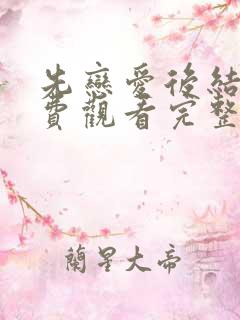 先戀愛後結
費觀看完整
蘭星大帝